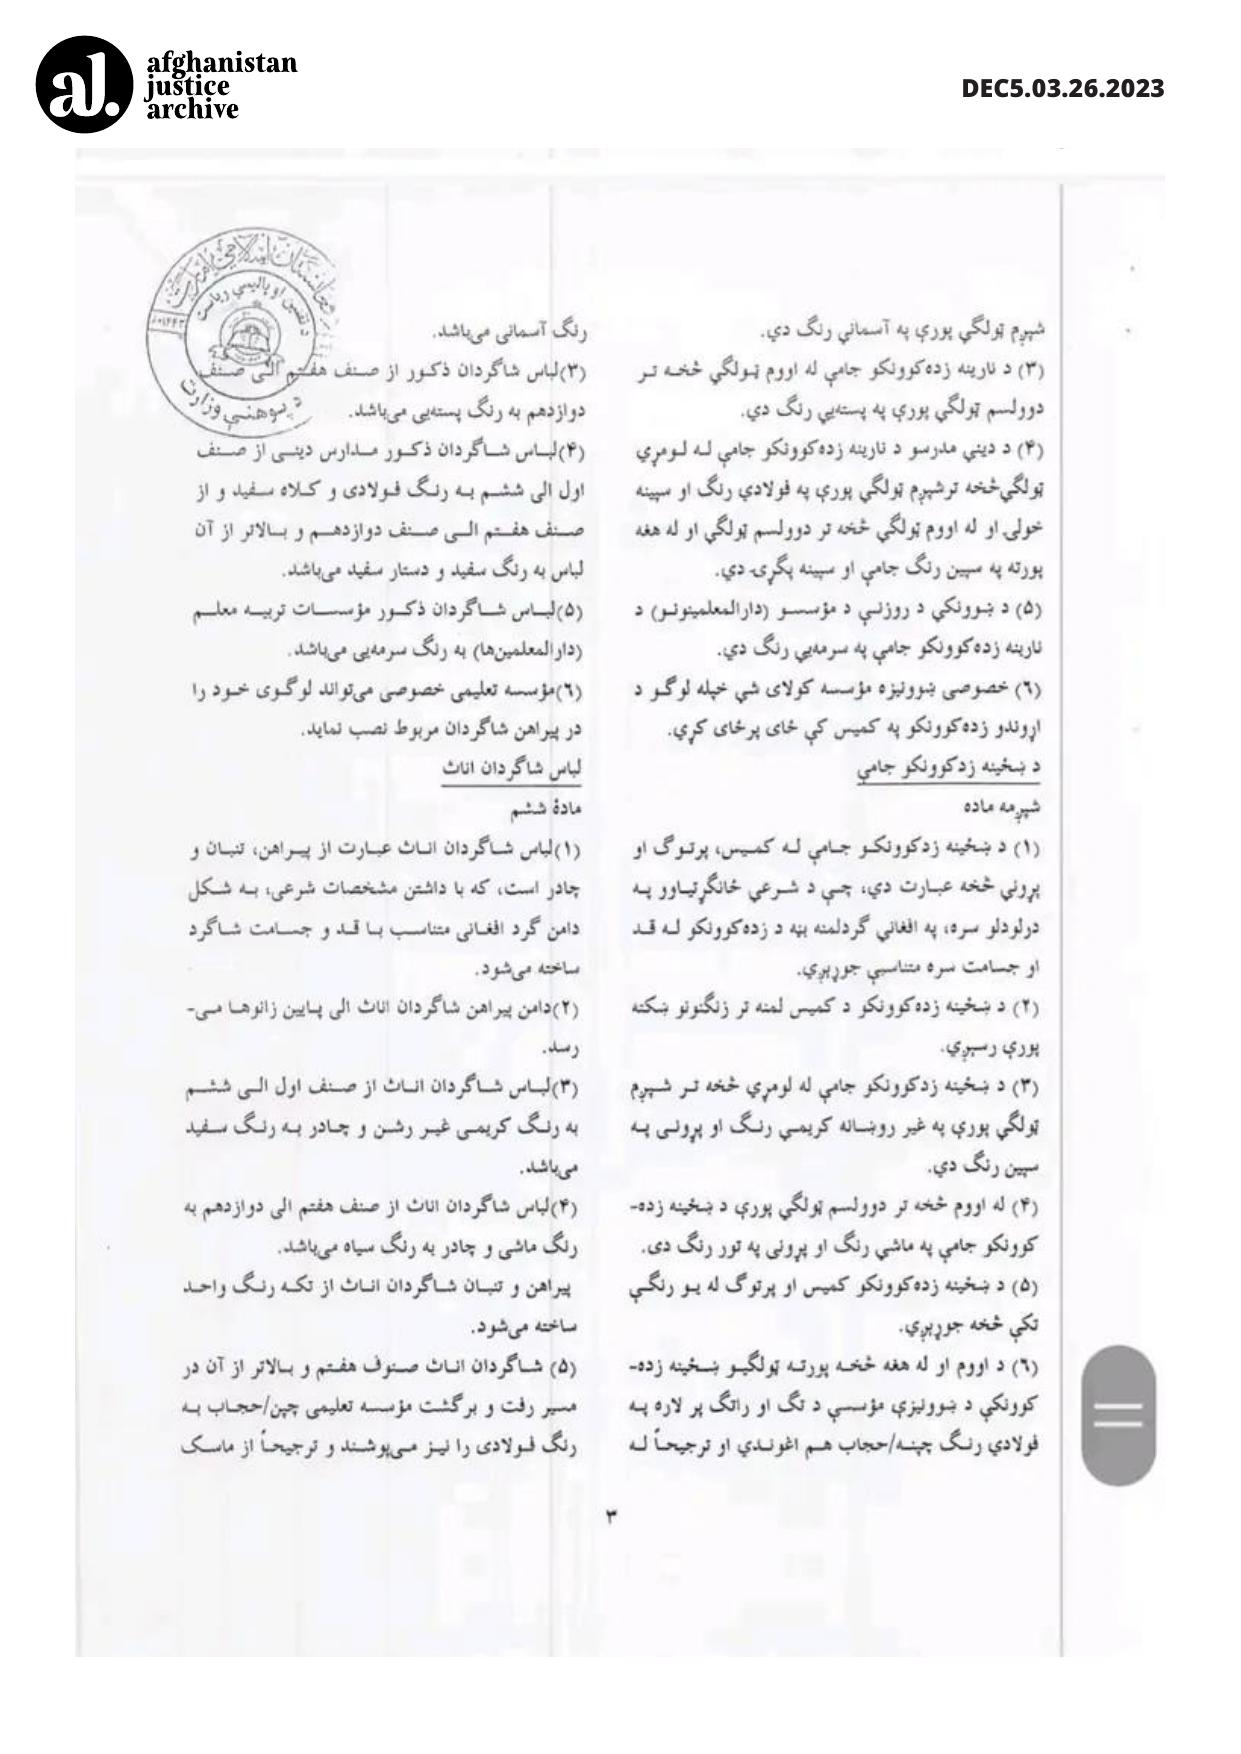 afghanistan
justice
archive
DEC5.03.26.2023
شپږم ټولگي پورې په آسماني رنگ دي.
(۳) د نارينه زده‌کوونکو جامې له اووم ټولگي څخه تر
دوولسم ټولگي پورې په پسته‌يي رنگ دي.
(۴) د ديني مدرسو د نارينه زده‌کوونکو جامې له لومړي
ټولگي څخه ترشپږم ټولگي پورې په فولادي رنگ او سپينه
خولۍ او له اووم ټولگي څخه تر دوولسم ټولگي او له هغه
پورته په سپين رنگ جامې او سپينه پگړۍ دي.
(۵) د ښوونکي د روزنې د مؤسسو (دارالمعلمينونو) د
نارينه زده‌کوونکو جامې په سرمه‌يي رنگ دي.
(٦) خصوصي ښوونيزه مؤسسه کولای شي خپله لوگو د
اړوندو زده‌کوونکو په کميس کې ځای پرځای کړي.
د ښځينه زدکوونکو جامې
شپږمه ماده
(۱) د ښځينه زدکوونکو جامې له کميس، پرتوگ او
پړوني څخه عبارت دي، چې د شرعي ځانگړتياوو په
درلودلو سره، په افغاني گردلمنه بڼه د زده‌کوونکو له قد
او جسامت سره متناسبې جوړېږي.
(۲) د ښځينه زده‌کوونکو د کميس لمنه تر زنگنونو ښکته
پورې رسېږي.
(۳) د ښځينه زدکوونکو جامې له لومړي څخه تر شپږم
ټولگي پورې په غير روښانه کريمي رنگ او پړونی په
سپين رنگ دي.
(۴) له اووم څخه تر دوولسم ټولگي پورې د ښځينه زده-
کوونکو جامې په ماشي رنگ او پړونی په تور رنگ دی.
(۵) د ښځينه زده‌کوونکو کميس او پرتوگ له يو رنگي
تکې څخه جوړېږي.
(٦) د اووم او له هغه څخه پورته ټولگيو ښځينه زده-
کوونکي د ښوونيزې مؤسسې د تگ او راتگ پر لاره په
فولادي رنگ چپنه/حجاب هم اغوندي او ترجيحاً له
رنگ آسمانی می‌باشد.
(۳)لباس شاگردان ذکور از صنف هفتم الی صنف
دوازدهم به رنگ پسته‌یی می‌باشد.
(۴)لباس شاگردان ذکور مدارس دینی از صنف
اول الی ششم به رنگ فولادی و کلاه سفید و از
صنف هفتم الی صنف دوازدهم و بالاتر از آن
لباس به رنگ سفید و دستار سفید می‌باشد.
(۵)لباس شاگردان ذکور مؤسسات تربیه معلم
(دارالمعلمین‌ها) به رنگ سرمه‌یی می‌باشد.
(٦)مؤسسه تعلیمی خصوصی می‌تواند لوگوی خود را
در پیراهن شاگردان مربوط نصب نماید.
لباس شاگردان اناث
مادهٔ ششم
(۱)لباس شاگردان اناث عبارت از پیراهن، تنبان و
چادر است، که با داشتن مشخصات شرعی، به شکل
دامن گرد افغانی متناسب با قد و جسامت شاگرد
ساخته می‌شود.
(۲)دامن پیراهن شاگردان اناث الی پایین زانوها می-
رسد.
(۳)لباس شاگردان اناث از صنف اول الی ششم
به رنگ کریمی غیر رشن و چادر به رنگ سفید
می‌باشد.
(۴)لباس شاگردان اناث از صنف هفتم الی دوازدهم به
رنگ ماشی و چادر به رنگ سیاه می‌باشد.
پیراهن و تنبان شاگردان اناث از تکه رنگ واحد
ساخته می‌شود.
(۵) شاگردان اناث صنوف هفتم و بالاتر از آن در
مسیر رفت و برگشت مؤسسه تعلیمی چپن/حجاب به
رنگ فولادی را نیز می‌پوشند و ترجیحاً از ماسک
د پوهنې وزارت
۳